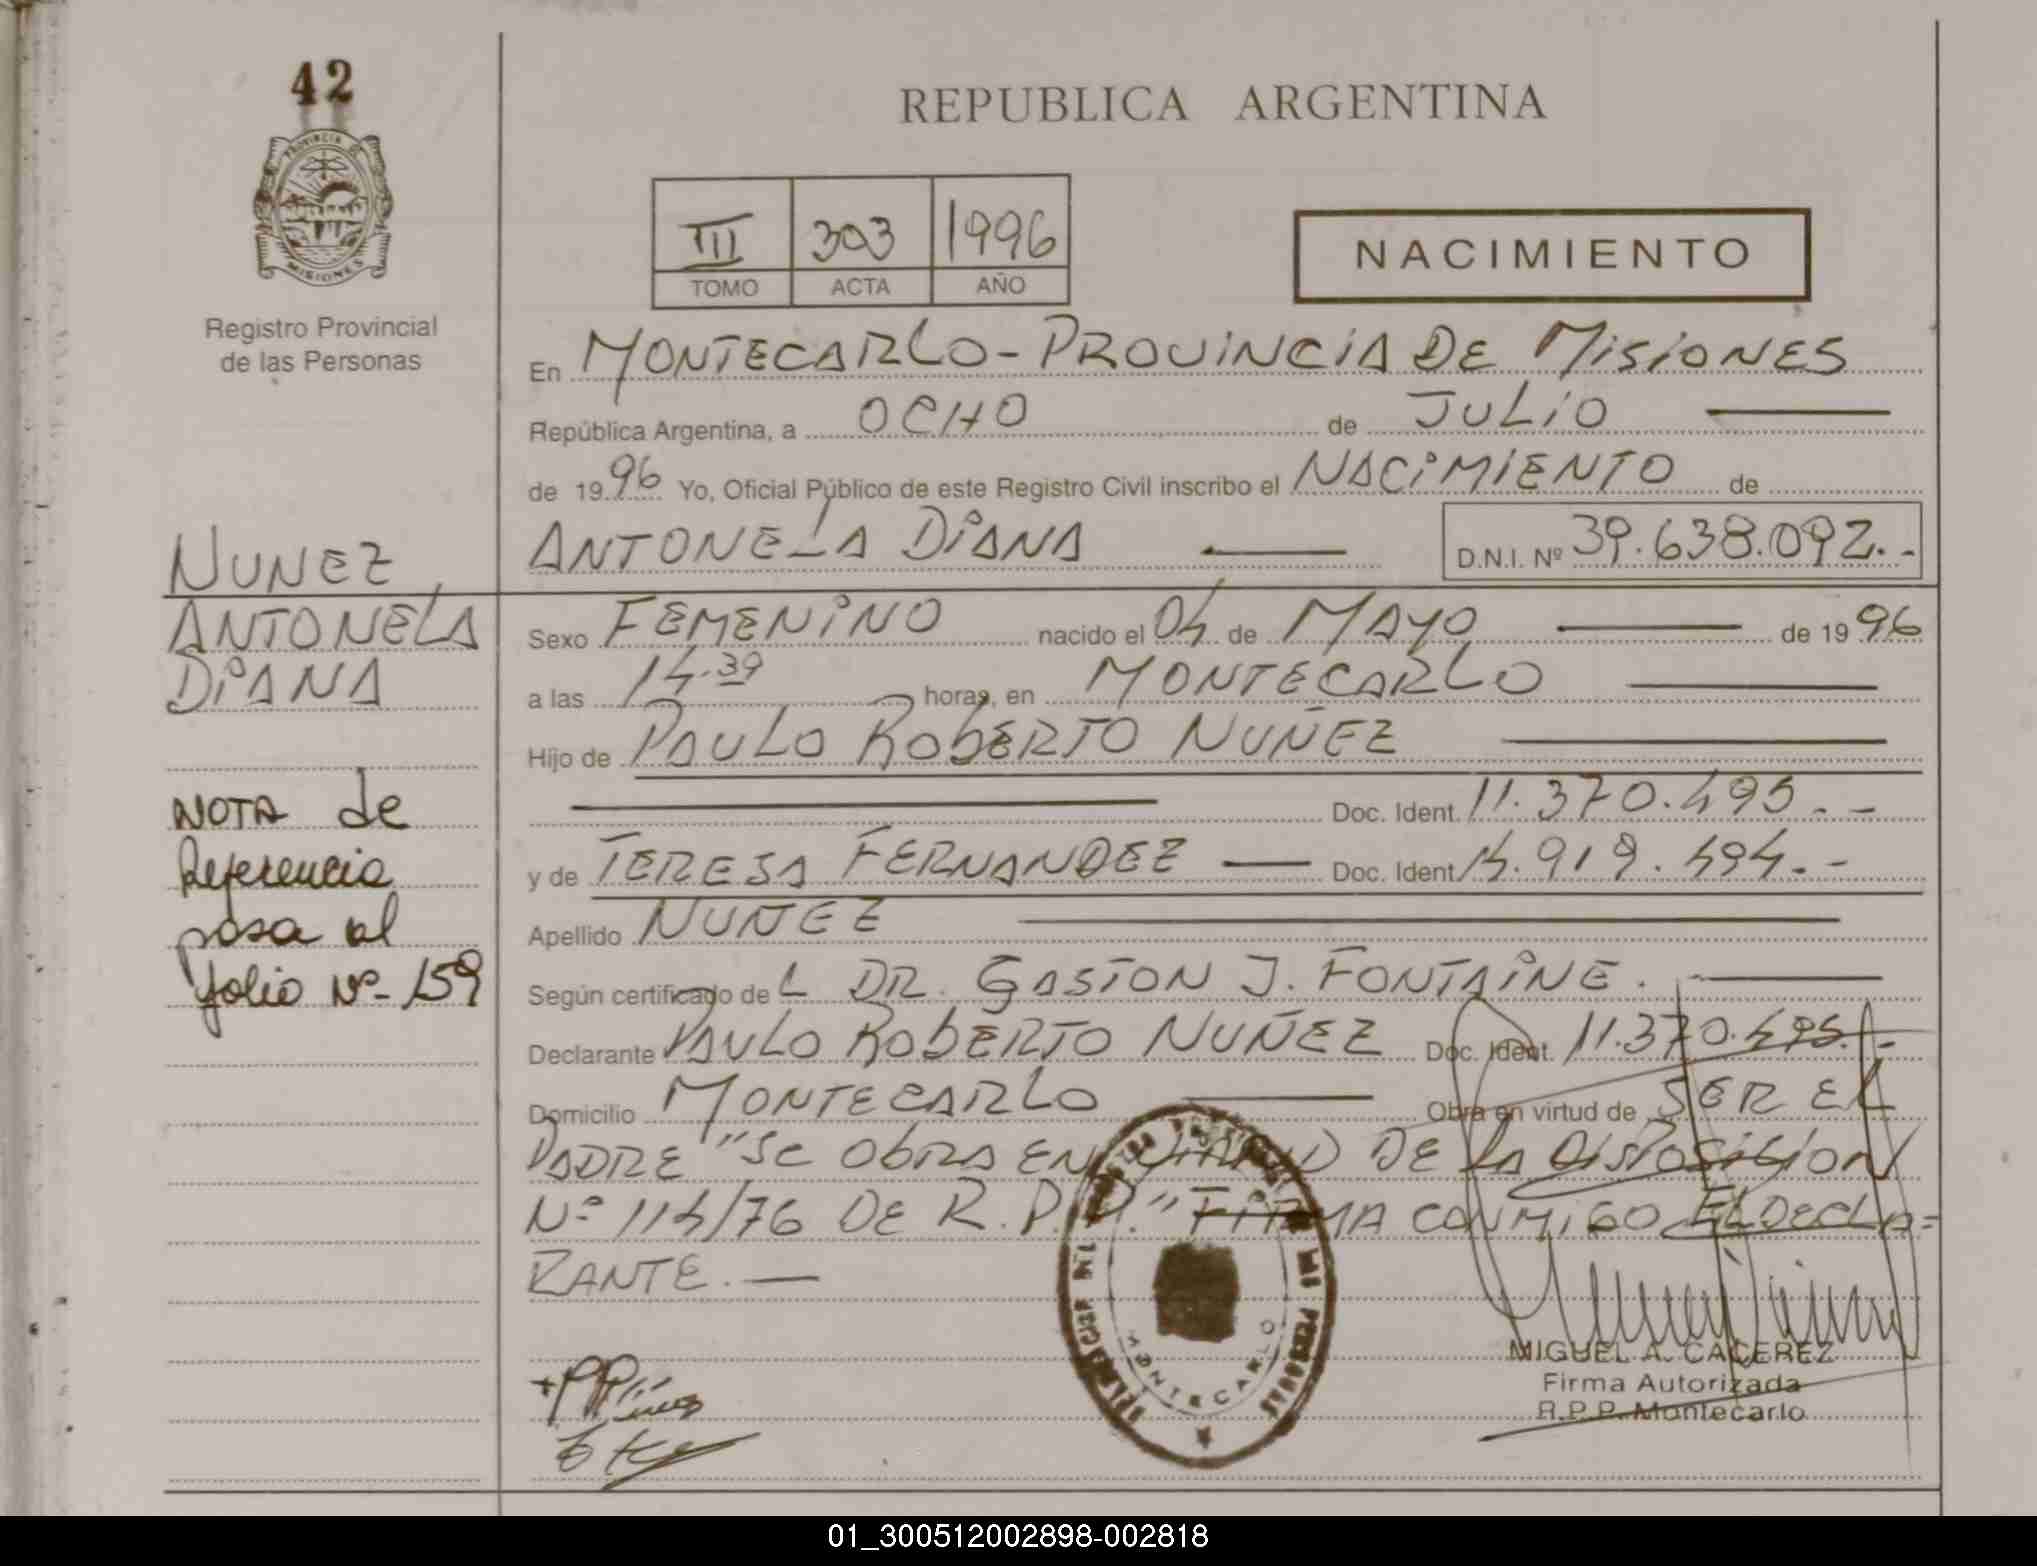 42
PROVINCIA DE
MISIONES
Registro Provincial
de las Personas
REPUBLICA ARGENTINA
III 303 1996
TOMO ACTA AÑO
NACIMIENTO
En MONTECARLO - PROVINCIA DE MISIONES
República Argentina, a OCHO de JULIO
de 1996 Yo, Oficial Público de este Registro Civil inscribo el NACIMIENTO de
ANTONELA DIANA D.N.I. Nº 39.638.092.-
Sexo FEMENINO nacido el 04 de MAYO de 1996
a las 14.39 horas, en MONTECARLO
Hijo de PAULO ROBERTO NUÑEZ
Doc. Ident. 11.370.495.-
y de TERESA FERNANDEZ Doc. Ident. 14.919.494.-
Apellido NUNEZ
Según certificado del DR. GASTON J. FONTAINE.
Declarante PAULO ROBERTO NUÑEZ Doc. Ident. 11.370.495.-
Domicilio MONTECARLO Obra en virtud de SER EL
PADRE "SE OBRA EN VIRTUD DE LA DISPOSICION
Nº 114/76 DE R.P.P." FIRMA CONMIGO EL DECLA-
RANTE.
NUNEZ
ANTONELA
DIANA
NOTA de
Referencia
pasa al
folio Nº- 159
MONTECARLO
MIGUEL A. CACEREZ
Firma Autorizada
R.P.P. Montecarlo
01_300512002898-002818